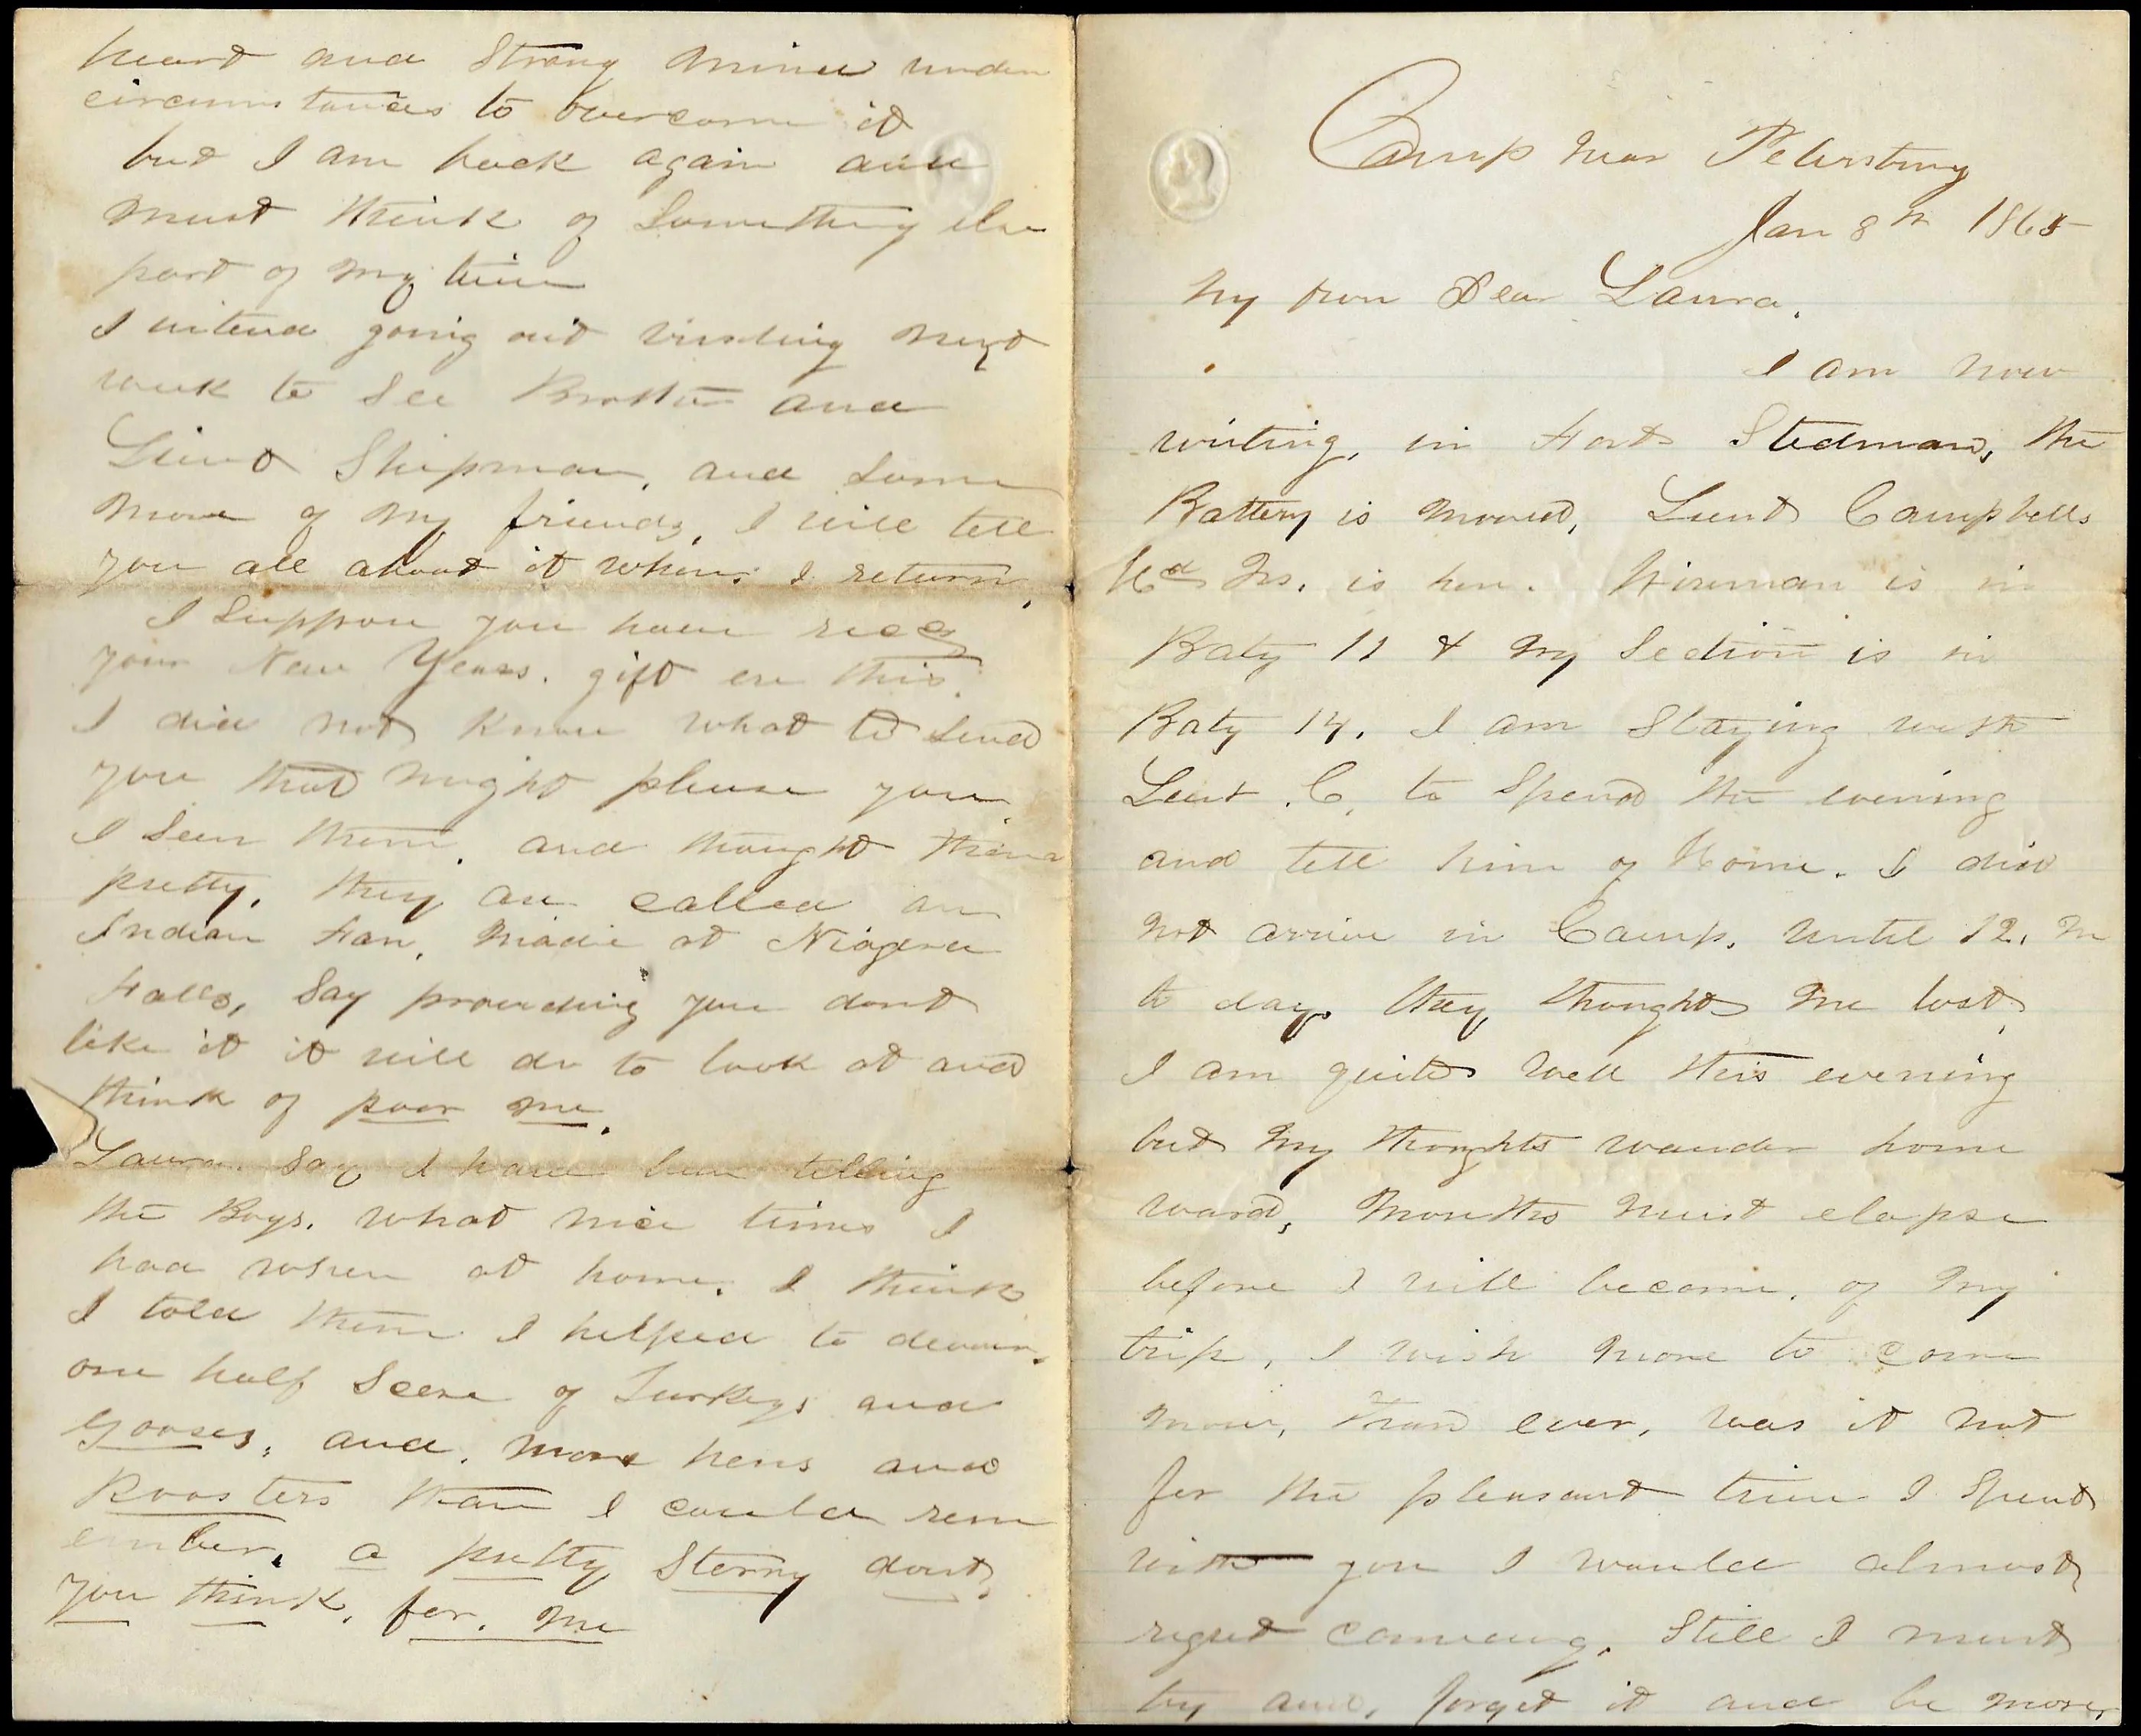 Camp near Petersburg
Jan 8th 1865
My own Dear Laura,
I am now
writing, in Fort Stedman, the
Battery is moved, Lieut Campbells
Hd Qrs. is here. Wireman is in
Baty 11 & my Section is in
Baty 14. I am Staying with
Lieut. C. to Spend the evening
and tell him of Home. I did
not arrive in Camp, until 12. M
to day. they thought me lost,
I am quite well this evening
but my thoughts wander home
ward, Months must elapse
before I will become, of my
trip, I wish more to come
now, than ever, was it not
for the pleasant time I Spent
with you I would almost
regret comeing, Still I must
try and, forget it and be more,
heart and Strong minded under
circumstances to overcome it
but I am back again and
must think of Something else
part of my time
I intend going out visiting next
week to See Brother and
Lieut Shipman, and Some
more of my friends, I will tell
you all about it when I return,
I Suppose you have recd
your New Years. gift ere this.
I did not know what to Send
you that might please you.
I Seen them, and thought them
pretty, they are called an
Indian Fan, made at Niagera
Falls, Say provideing you dont
like it it will do to look at and
think of poor me.
Laura. Say I have been telling
the Boys. what nice times I
had when at home. I think
I told them I helped to devour,
one half Score of Turkeys and
Gooses, and, more hens and
Roosters than I could rem
ember, a pretty Storry dont,
you think, for. me